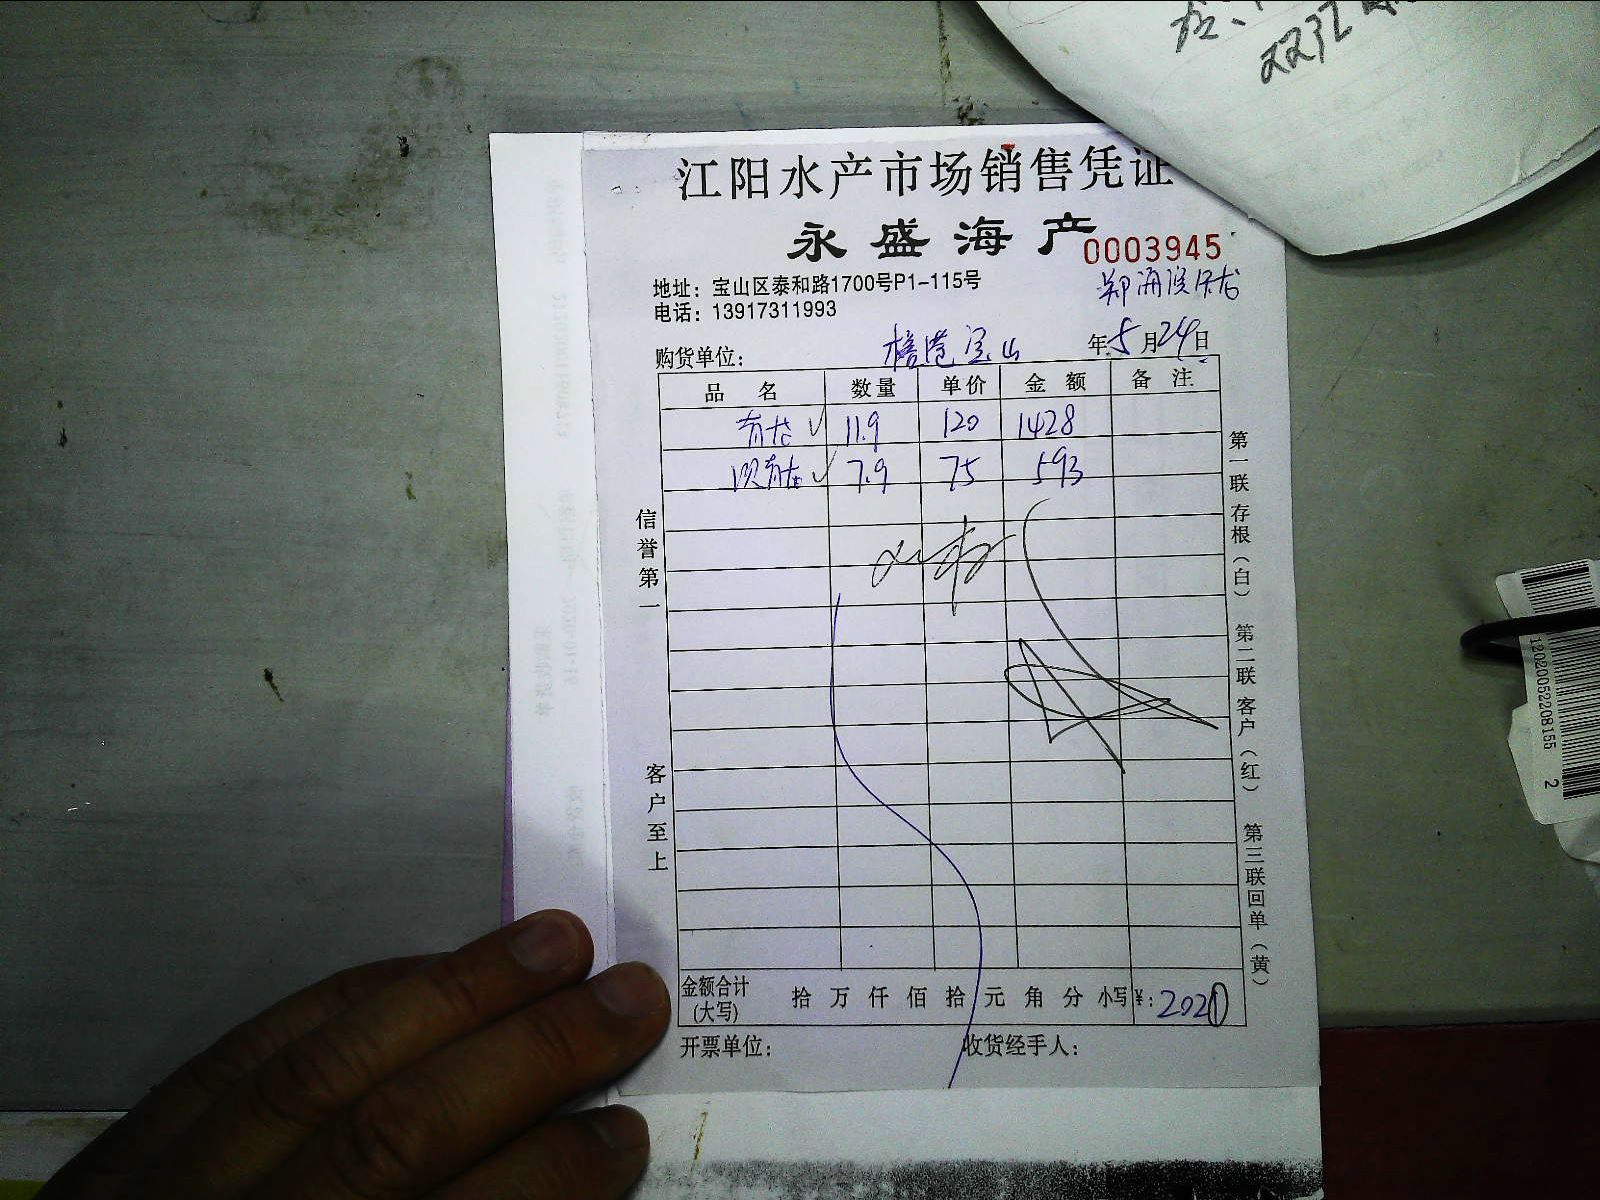 江阳水产市场销售凭证
永盛海产
0003945
地址：宝山区泰和路1700号P1-115号
电话：13917311993
购货单位： 宝山 年5月24日
品名 数量 单价 金额 备注
11.9 120 1428
7.9 75 593
信誉第一
客户至上
第一联存根（白） 第二联客户（红） 第三联回单（黄）
金额合计(大写) 拾 万 仟 佰 拾 元 角 分 小写¥：2020
开票单位： 收货经手人：
12020052208155 2